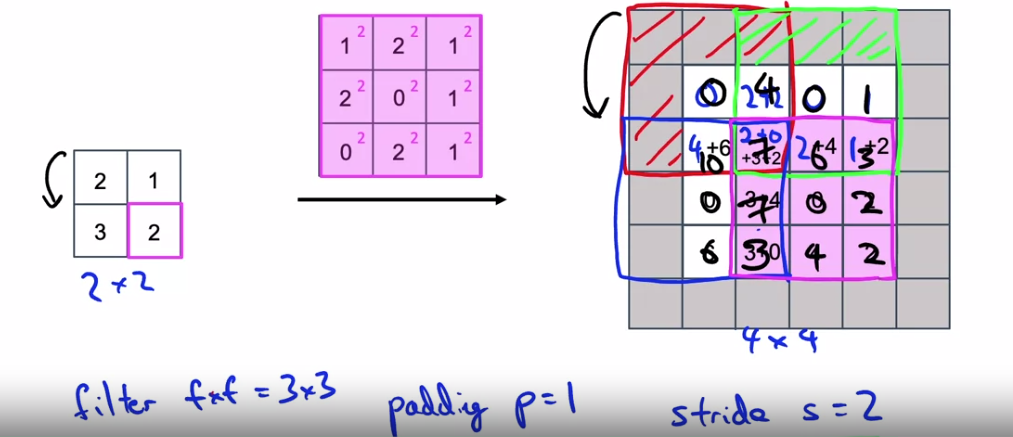 2 1
3 2
2 × 2
1² 2² 1²
2² 0² 1²
0² 2² 1²
0 2+2 4 0 1
4 +6 10 2+0 +3+2 7 2 +4 6 1 +2 3
0 7 0 2
6 3 4 2
4 × 4
filter f×f = 3×3
paddig p = 1
stride s = 2